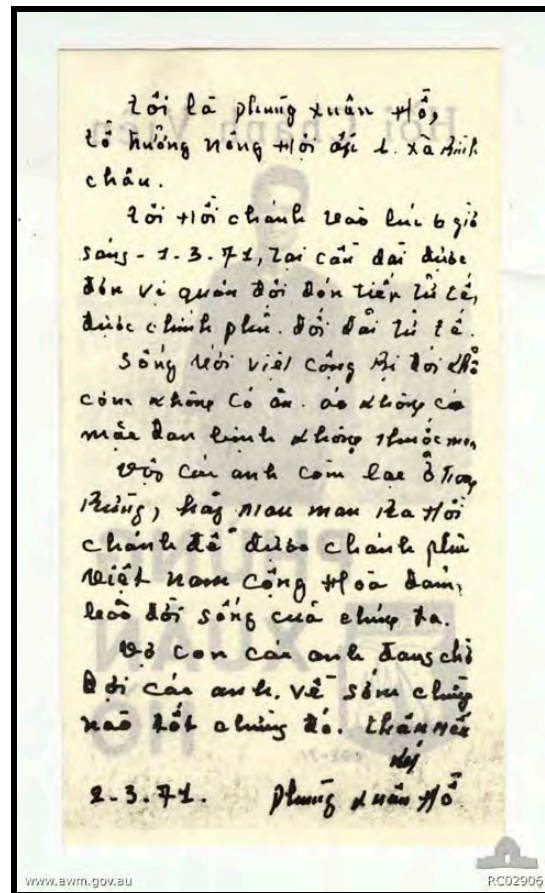 tôi là phùng xuân Hồ,
tổ trưởng nông Hội ấp 1. xã Bình
châu.
tôi Hồi chánh vào lúc 6 giờ
sáng - 1.3.71, tại cần đai được
đơn vị quân đội đón tiếp tử tế,
được chính phủ. đối đãi tử tế.
sống với việt cộng bị đói khổ
cơm không có ăn. áo không có
mặc đau bịnh không thuốc men
vậy các anh còn lạc ở trong
Rừng, hãy mau mau Ra Hồi
chánh để được chánh phủ
việt nam cộng Hòa đảm
bảo đời sống của chúng ta.
vợ con các anh đang chờ
Đợi các anh. về sớm chừng
nào tốt chừng đó. thân mến
ký
2-3-71. phùng xuân Hồ
Hồi Chánh Viên
PHÙNG
XUÂN
HỒ
www.awm.gov.au
RC02906